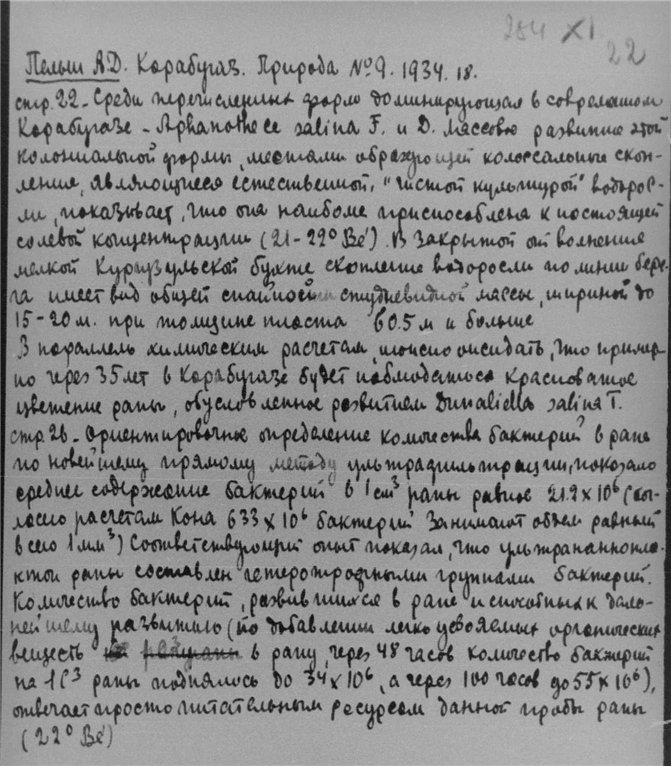 284 XI
22
Пельш А.Д. Карабугаз. Природа № 9. 1934. 18.
стр. 22 - Среди перечисленных форм доминирующая в современном
Карабугазе - Aphanothece salina F. и D. Массовое развитие этой
колониальной формы, местами образующей колоссальные скоп-
ления, являющиеся естественной, "чистой культурой" водорос-
ли, показывает, что она наиболее приспособлена к настоящей
солевой концентрации (21-22° Bé). В закрытой от волнения
мелкой Кургузульской бухте скопление водоросли по линии бере-
га имеет вид общей спайной студневидной массы, шириной до
15-20 м. при толщине пласта в 0.5 м и больше
В параллель химическим расчетам, можно ожидать, что пример-
но через 35 лет в Карабугазе будет наблюдаться красноватое
цветение рапы, обусловленное развитием Dunaliella salina T.
стр. 26 - Ориентировочное определение количества бактерий в рапе
по новейшему прямому методу ультрафильтрации, показало
среднее содержание бактерий в 1 см³ рапы равное 21.2 × 10⁶ (со-
гласно расчетам Кона 633 × 10⁶ бактерий занимают объем равный
всего 1 мм³) Соответствующий опыт показал, что ультрананнопла-
нктон рапы составлен гетеротрофными группами бактерий.
Количество бактерий, развившихся в рапе и способных к даль-
нейшему развитию (по добавлении легко усвояемых органических
веществ в рапу, через 48 часов количество бактерий
на 1 С³ рапы поднялось до 34 × 10⁶, а через 100 часов до 55 × 10⁶),
отвечает просто питательным ресурсам данной пробы рапы
(22° Bé)